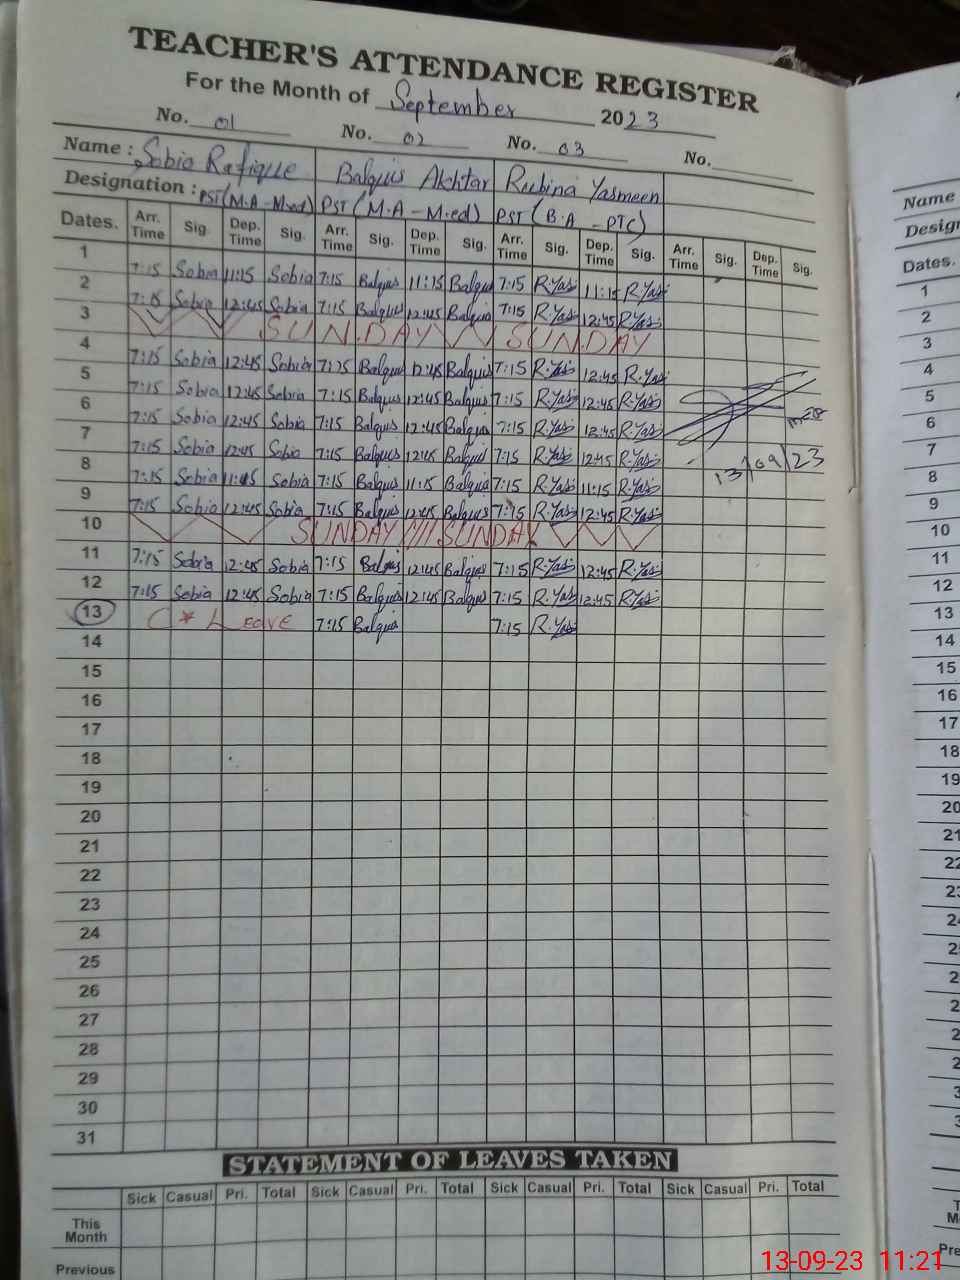 TEACHER'S ATTENDANCE REGISTER
For the Month of September 2023
No. 01 No. 02 No. 03 No.
Name : Sobia Rafique Balquis Akhtar Rubina Yasmeen
Designation : PST (M.A - M.ed) PST (M.A - M.ed) PST (B.A - PTC)
Dates. Arr. Time Sig. Dep. Time Sig. Arr. Time Sig. Dep. Time Sig. Arr. Time Sig. Dep. Time Sig. Arr. Time Sig. Dep. Time Sig.
1 7:15 Sobia 11:15 Sobia 7:15 Balquis 11:15 Balquis 7:15 R.Yas 11:15 R.Yas
2 7:15 Sobia 12:45 Sobia 7:15 Balquis 12:45 Balquis 7:15 R.Yas 12:45 R.Yas
3 SUNDAY SUNDAY
4 7:15 Sobia 12:45 Sobia 7:15 Balquis 12:45 Balquis 7:15 R.Yas 12:45 R.Yas
5 7:15 Sobia 12:45 Sobia 7:15 Balquis 12:45 Balquis 7:15 R.Yas 12:45 R.Yas
6 7:15 Sobia 12:45 Sobia 7:15 Balquis 12:45 Balquis 7:15 R.Yas 12:45 R.Yas
7 7:15 Sobia 12:45 Sobia 7:15 Balquis 12:45 Balquis 7:15 R.Yas 12:45 R.Yas
13/09/23
8 7:15 Sobia 11:15 Sobia 7:15 Balquis 11:15 Balquis 7:15 R.Yas 11:15 R.Yas
9 7:15 Sobia 12:45 Sobia 7:15 Balquis 12:45 Balquis 7:15 R.Yas 12:45 R.Yas
10 SUNDAY SUNDAY
11 7:15 Sobia 12:45 Sobia 7:15 Balquis 12:45 Balquis 7:15 R.Yas 12:45 R.Yas
12 7:15 Sobia 12:45 Sobia 7:15 Balquis 12:45 Balquis 7:15 R.Yas 12:45 R.Yas
13 C * Leave 7:15 Balquis 7:15 R.Yas
14
15
16
17
18
19
20
21
22
23
24
25
26
27
28
29
30
31
STATEMENT OF LEAVES TAKEN
Sick Casual Pri. Total Sick Casual Pri. Total Sick Casual Pri. Total Sick Casual Pri. Total
This Month
Previous
Name
Dates.
1
2
3
4
5
6
7
8
9
10
11
12
13
14
15
16
17
18
19
20
21
22
23
13-09-23 11:21